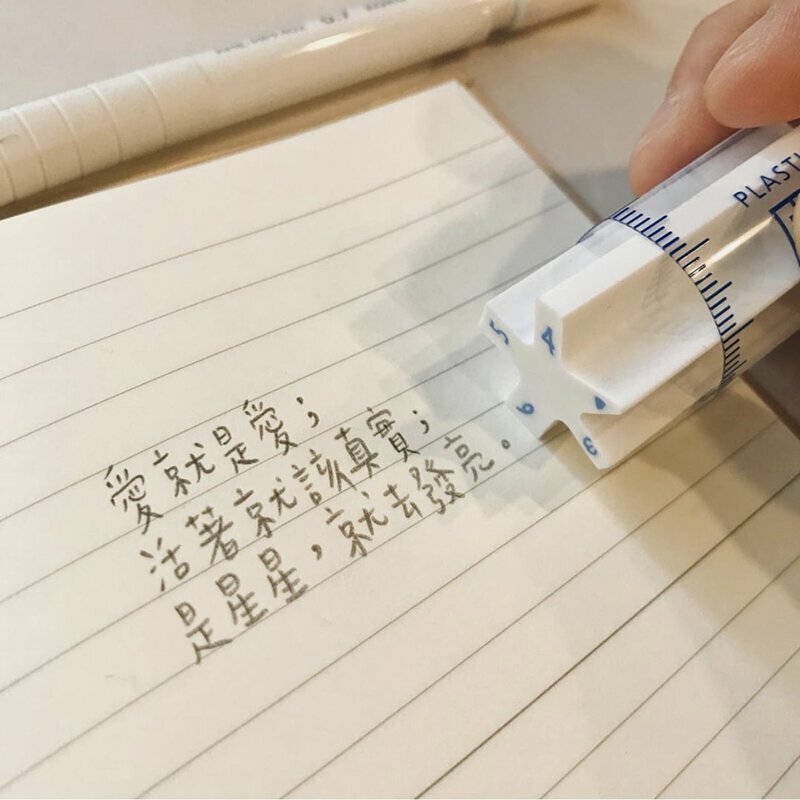 愛就是愛；
活著就該真實；
是星星，就去發亮。
PLASTI
5
4
6
3